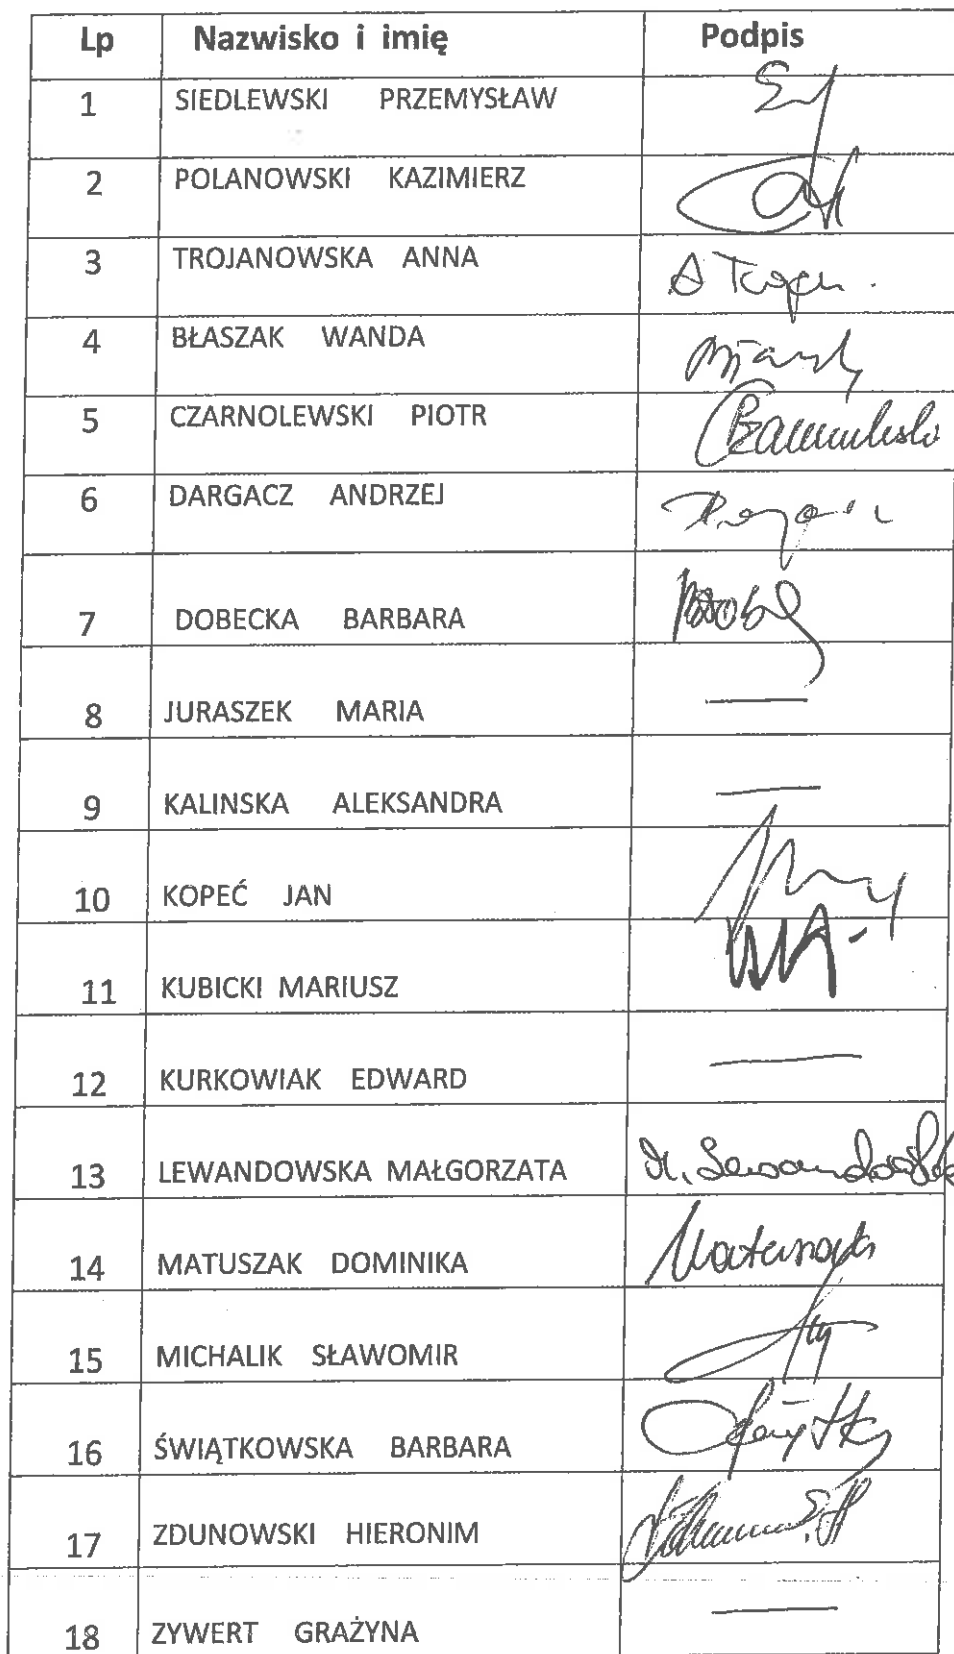 Lp Nazwisko i imię Podpis
1 SIEDLEWSKI PRZEMYSŁAW
2 POLANOWSKI KAZIMIERZ
3 TROJANOWSKA ANNA
4 BŁASZAK WANDA
5 CZARNOLEWSKI PIOTR
6 DARGACZ ANDRZEJ
7 DOBECKA BARBARA
8 JURASZEK MARIA —
9 KALINSKA ALEKSANDRA —
10 KOPEĆ JAN
11 KUBICKI MARIUSZ
12 KURKOWIAK EDWARD —
13 LEWANDOWSKA MAŁGORZATA M. Lewandowska
14 MATUSZAK DOMINIKA Matuszak
15 MICHALIK SŁAWOMIR
16 ŚWIĄTKOWSKA BARBARA
17 ZDUNOWSKI HIERONIM
18 ZYWERT GRAŻYNA —